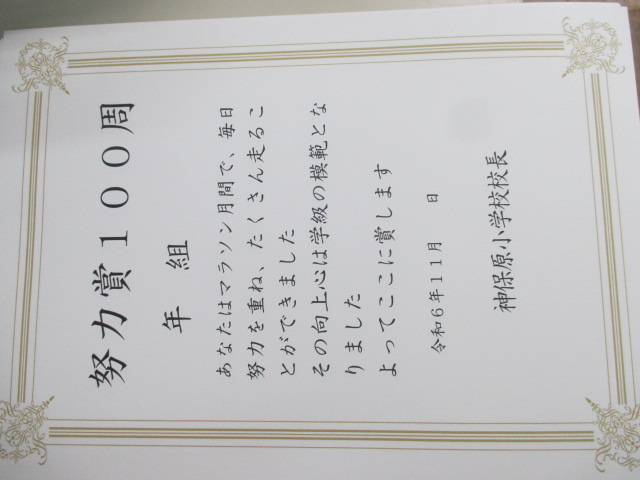 努力賞１００周
年　組
あなたはマラソン月間で、毎日
努力を重ね、たくさん走るこ
とができました
その向上心は学級の模範とな
りました
よってここに賞します
令和６年１１月　　日
神保原小学校校長